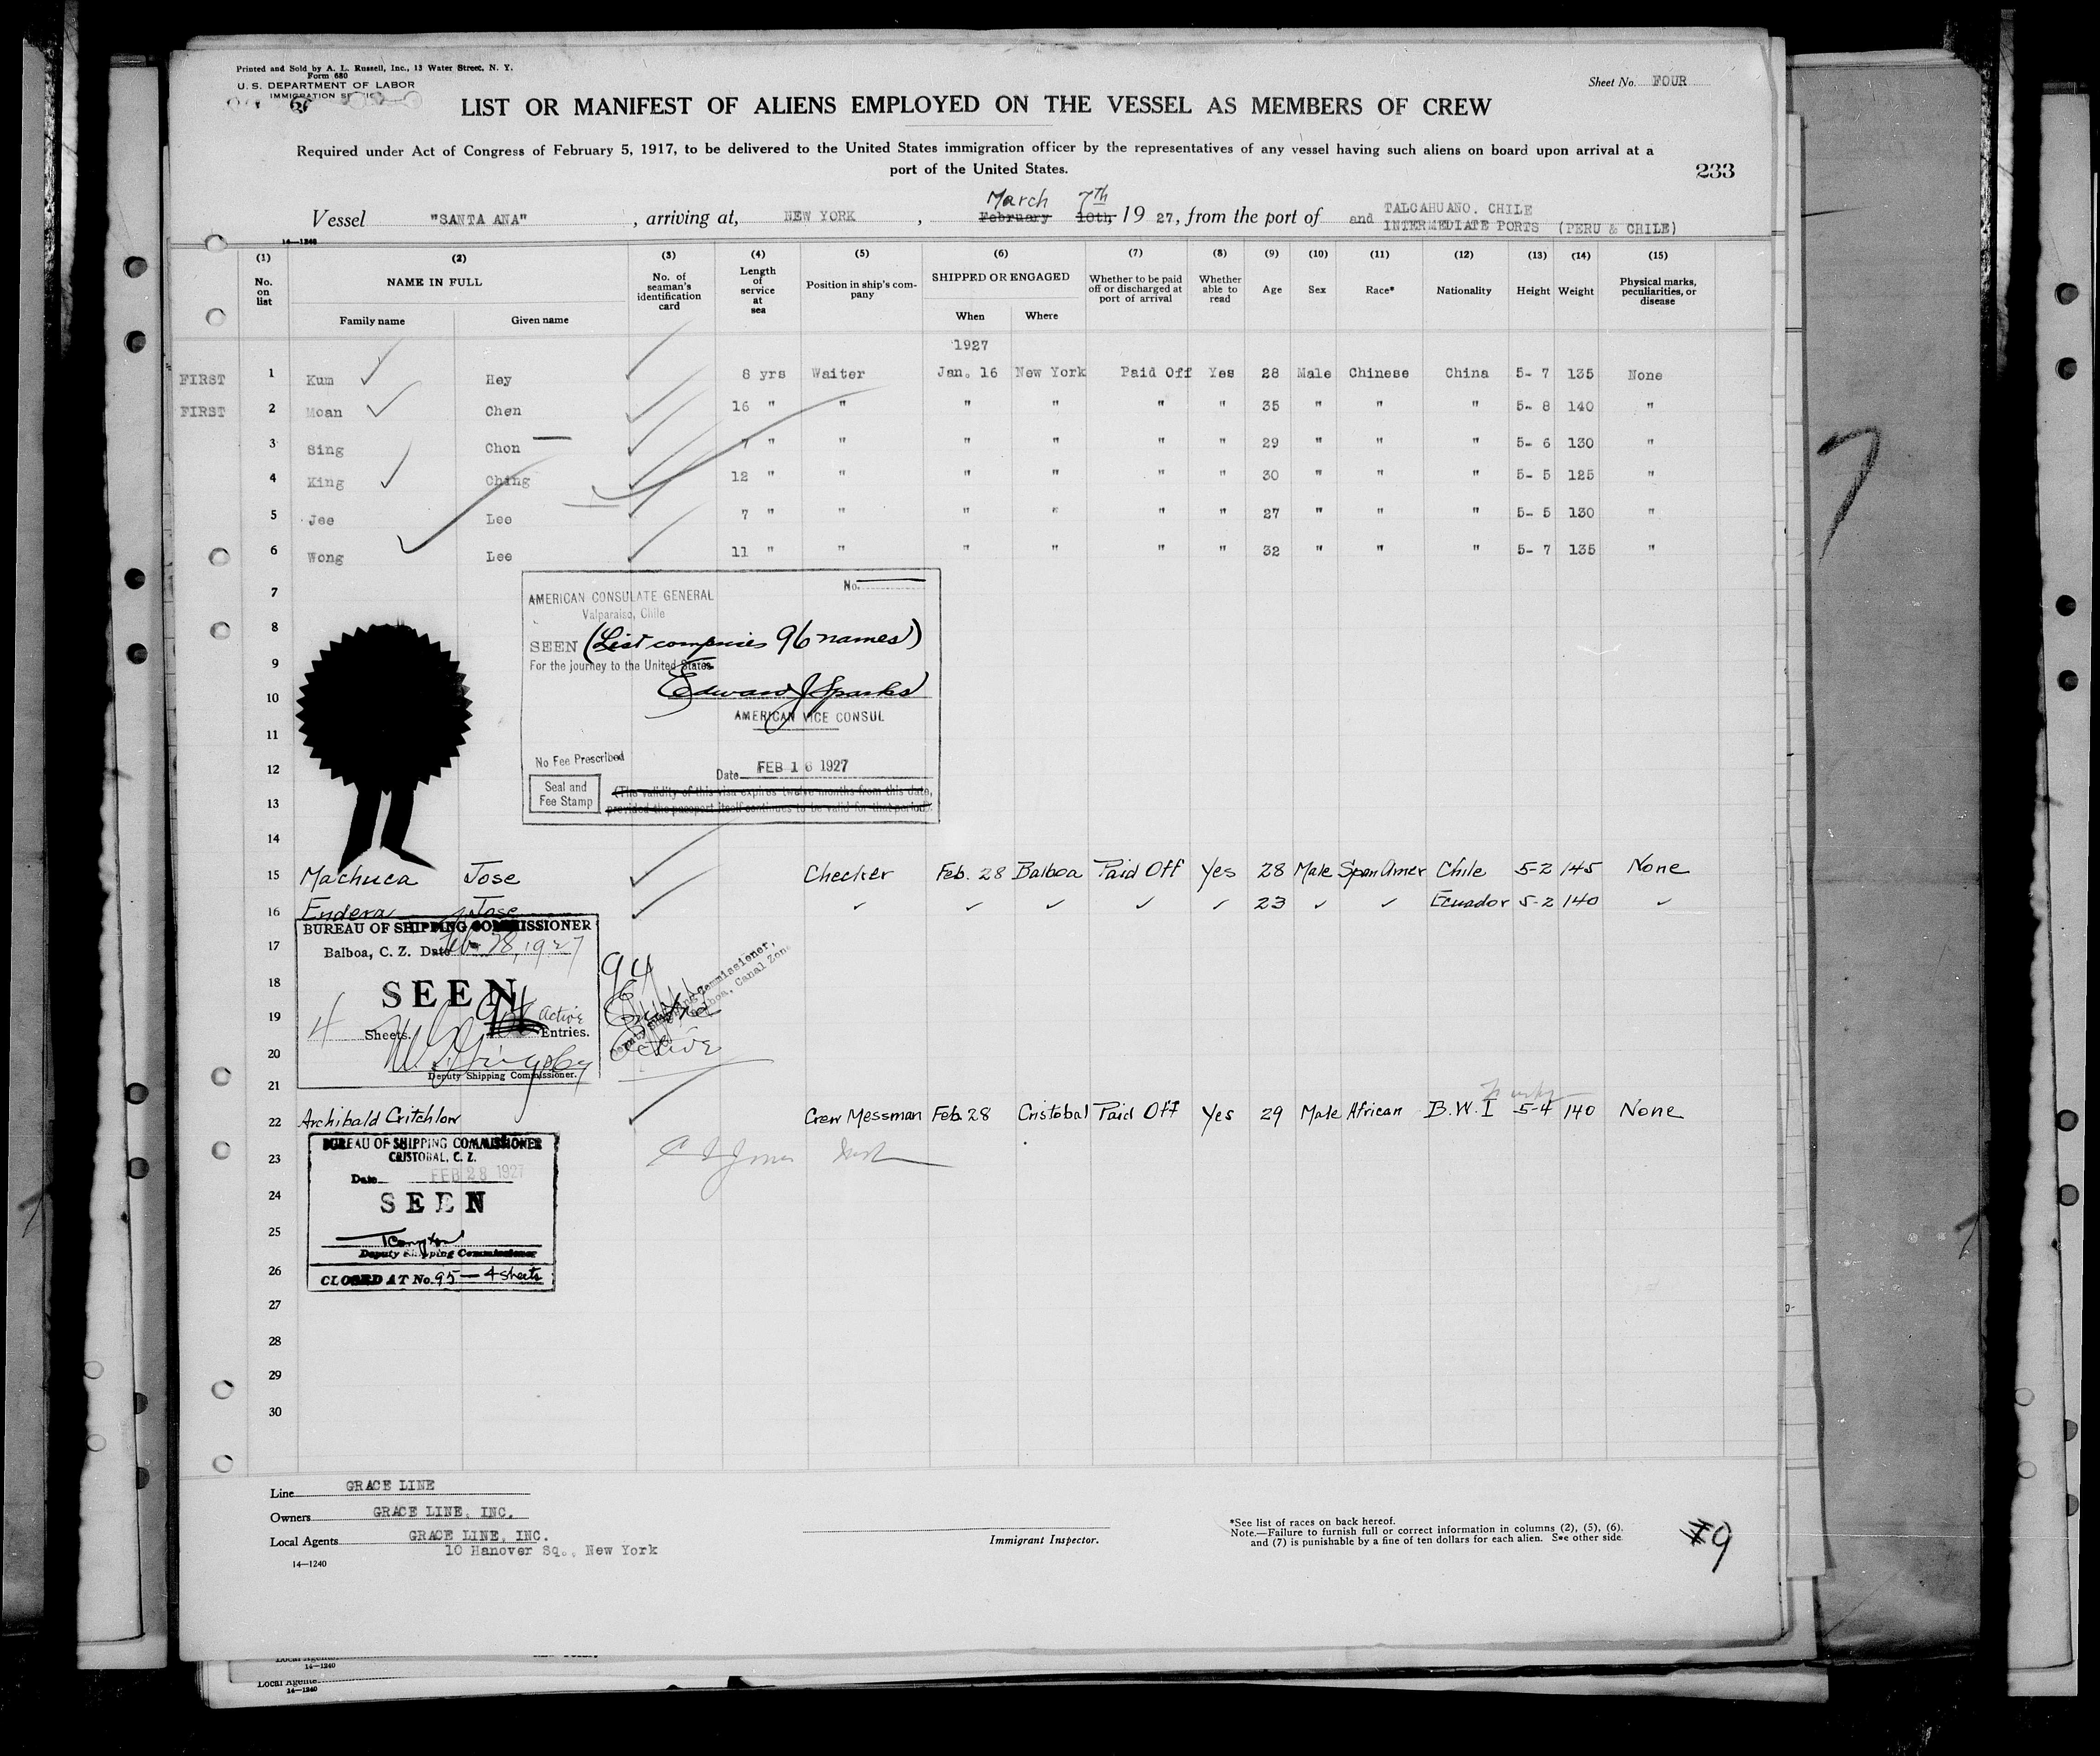 Printed and Sold by A. L. Russell, Inc., 13 Water Street, N. Y.
Form 680
U. S. DEPARTMENT OF LABOR
IMMIGRATION SERVICE
Sheet No. FOUR
LIST OR MANIFEST OF ALIENS EMPLOYED ON THE VESSEL AS MEMBERS OF CREW
Required under Act of Congress of February 5, 1917, to be delivered to the United States immigration officer by the representatives of any vessel having such aliens on board upon arrival at a
port of the United States.
233
March 7th
Vessel "SANTA ANA", arriving at, NEW YORK, February 10th, 19 27, from the port of and TALCAHUANO. CHILE
INTERMEDIATE PORTS (PERU & CHILE)
14—1240
(1) (2) (3) (4) (5) (6) (7) (8) (9) (10) (11) (12) (13) (14) (15)
No. on list NAME IN FULL No. of seaman's identification card Length of service at sea Position in ship's company SHIPPED OR ENGAGED Whether to be paid off or discharged at port of arrival Whether able to read Age Sex Race* Nationality Height Weight Physical marks, peculiarities, or disease
Family name Given name When Where
1927
FIRST 1 Kum Hey 8 yrs Waiter Jan. 16 New York Paid Off Yes 28 Male Chinese China 5- 7 135 None
FIRST 2 Moan Chen 16 " " " " " " 35 " " " 5- 8 140 "
3 Sing Chon 7 " " " " " " 29 " " " 5- 6 130 "
4 King Ching 12 " " " " " " 30 " " " 5- 5 125 "
5 Jee Lee 7 " " " " " " 27 " " " 5- 5 130 "
6 Wong Lee 11 " " " " " " 32 " " " 5- 7 135 "
7
8
9
10
11
12
13
14
No.
AMERICAN CONSULATE GENERAL
Valparaiso, Chile
SEEN (List comprises 96 names)
For the journey to the United States
Edward J Sparks
AMERICAN VICE CONSUL
No Fee Prescribed
Date FEB 16 1927
Seal and
Fee Stamp
(The validity of this visa expires twelve months from this date,
provided the passport itself continues to be valid for that period).
15 Machuca Jose Checker Feb. 28 Balboa Paid Off Yes 28 Male Span Amer Chile 5-2 145 None
16 Endera Jose ✓ ✓ ✓ ✓ ✓ 23 ✓ ✓ Ecuador 5-2 140 ✓
17
18
19
20
21
BUREAU OF SHIPPING COMMISSIONER
Balboa, C. Z. Date Feb 28, 1927
SEEN
4 Sheets. 94 Active Entries.
Deputy Shipping Commissioner.
94
Active
Deputy Shipping Commissioner,
Balboa, Canal Zone
22 Archibald Critchlow Crew Messman Feb. 28 Cristobal Paid Off Yes 29 Male African B.W.I 5-4 140 None
23
24
25
26
27
28
29
30
BUREAU OF SHIPPING COMMISSIONER
CRISTOBAL, C. Z.
Date FEB 28 1927
SEEN
Deputy Shipping Commissioner
CLOSED AT No. 95 — 4 sheets
Line GRACE LINE
Owners GRACE LINE, INC.
Local Agents GRACE LINE, INC.
10 Hanover Sq., New York
14—1240
Immigrant Inspector.
*See list of races on back hereof.
Note.—Failure to furnish full or correct information in columns (2), (5), (6).
and (7) is punishable by a fine of ten dollars for each alien. See other side
9
7
Local Agents
14—1240
Local Agents
14—1240